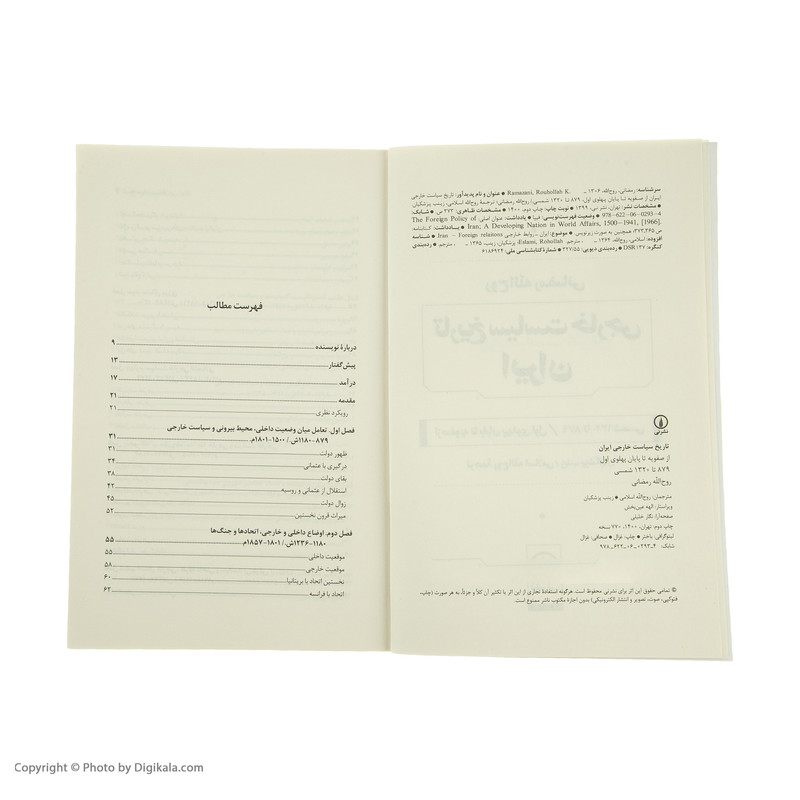 سرشناسه: رمضانی، روح‌الله، ۱۳۰۶ - Ramazani, Rouhollah K. ● عنوان و نام پدیدآور: تاریخ سیاست خارجی
ایران از صفویه تا پایان پهلوی اول، ۸۷۹ تا ۱۳۲۰ شمسی / روح‌الله رمضانی؛ ترجمهٔ روح‌الله اسلامی، زینب پزشکیان
● مشخصات نشر: تهران، نشر نی، ۱۳۹۹ ● نوبت چاپ: چاپ دوم، ۱۴۰۰ ● مشخصات ظاهری: ۳۷۳ ص ● شابک:
978-622-06-0293-4 ● وضعیت فهرست‌نویسی: فیپا ● یادداشت: عنوان اصلی: The Foreign Policy of
Iran; A Developing Nation in World Affairs, 1500-1941, [1966]. ● یادداشت: کتابنامه:
ص. [۳۶۵]-۳۷۳؛ همچنین به صورت زیرنویس. ● موضوع: ایران - روابط خارجی Iran — Foreign relaitons ● شناسه
افزوده: اسلامی، روح‌الله، ۱۳۶۲ - ، مترجم Eslami, Rohollah؛ پزشکیان، زینب، ۱۳۶۵ - ، مترجم ● رده‌بندی
کنگره: DSR۱۳۷ ● رده‌بندی دیویی: ۳۲۷/۵۵ ● شمارهٔ کتابشناسی ملی: ۶۱۸۶۹۲۴
نشر نی
تاریخ سیاست خارجی ایران
از صفویه تا پایان پهلوی اول
۸۷۹ تا ۱۳۲۰ شمسی
روح‌الله رمضانی
مترجمان: روح‌الله اسلامی ● زینب پزشکیان
ویراستار: الهه عین‌بخش
صفحه‌آرا: نگار خلیلی
چاپ دوم: تهران، ۱۴۰۰، ۷۷۰ نسخه
لیتوگرافی: باختر ● چاپ: غزال ● صحافی: غزال
شابک: ۴-۰۲۹۳-۰۶-۶۲۲-۹۷۸
© تمامی حقوق این اثر برای نشرنی محفوظ است. هرگونه استفادهٔ تجاری از این اثر یا تکثیر آن کلاً و جزئاً، به هر صورت (چاپ،
فتوکپی، صوت، تصویر و انتشار الکترونیکی) بدون اجازهٔ مکتوب ناشر ممنوع است.
فهرست مطالب
دربارهٔ نویسنده ۹
پیش‌گفتار ۱۳
درآمد ۱۷
مقدمه ۲۱
رویکرد نظری ۲۱
فصل اول. تعامل میان وضعیت داخلی، محیط بیرونی و سیاست خارجی
۸۷۹-۱۱۸۰ش. / ۱۵۰۰-۱۸۰۱م. ۳۱
ظهور دولت ۳۱
درگیری با عثمانی ۳۴
بقای دولت ۳۸
استقلال از عثمانی و روسیه ۴۲
زوال دولت ۴۵
میراث قرون نخستین ۵۲
فصل دوم. اوضاع داخلی و خارجی، اتحادها و جنگ‌ها
۱۱۸۰-۱۲۳۶ش. / ۱۸۰۱-۱۸۵۷م. ۵۵
موقعیت داخلی ۵۵
موقعیت خارجی ۵۸
نخستین اتحاد با بریتانیا ۶۰
اتحاد با فرانسه ۶۲
Copyright © Photo by Digikala.com